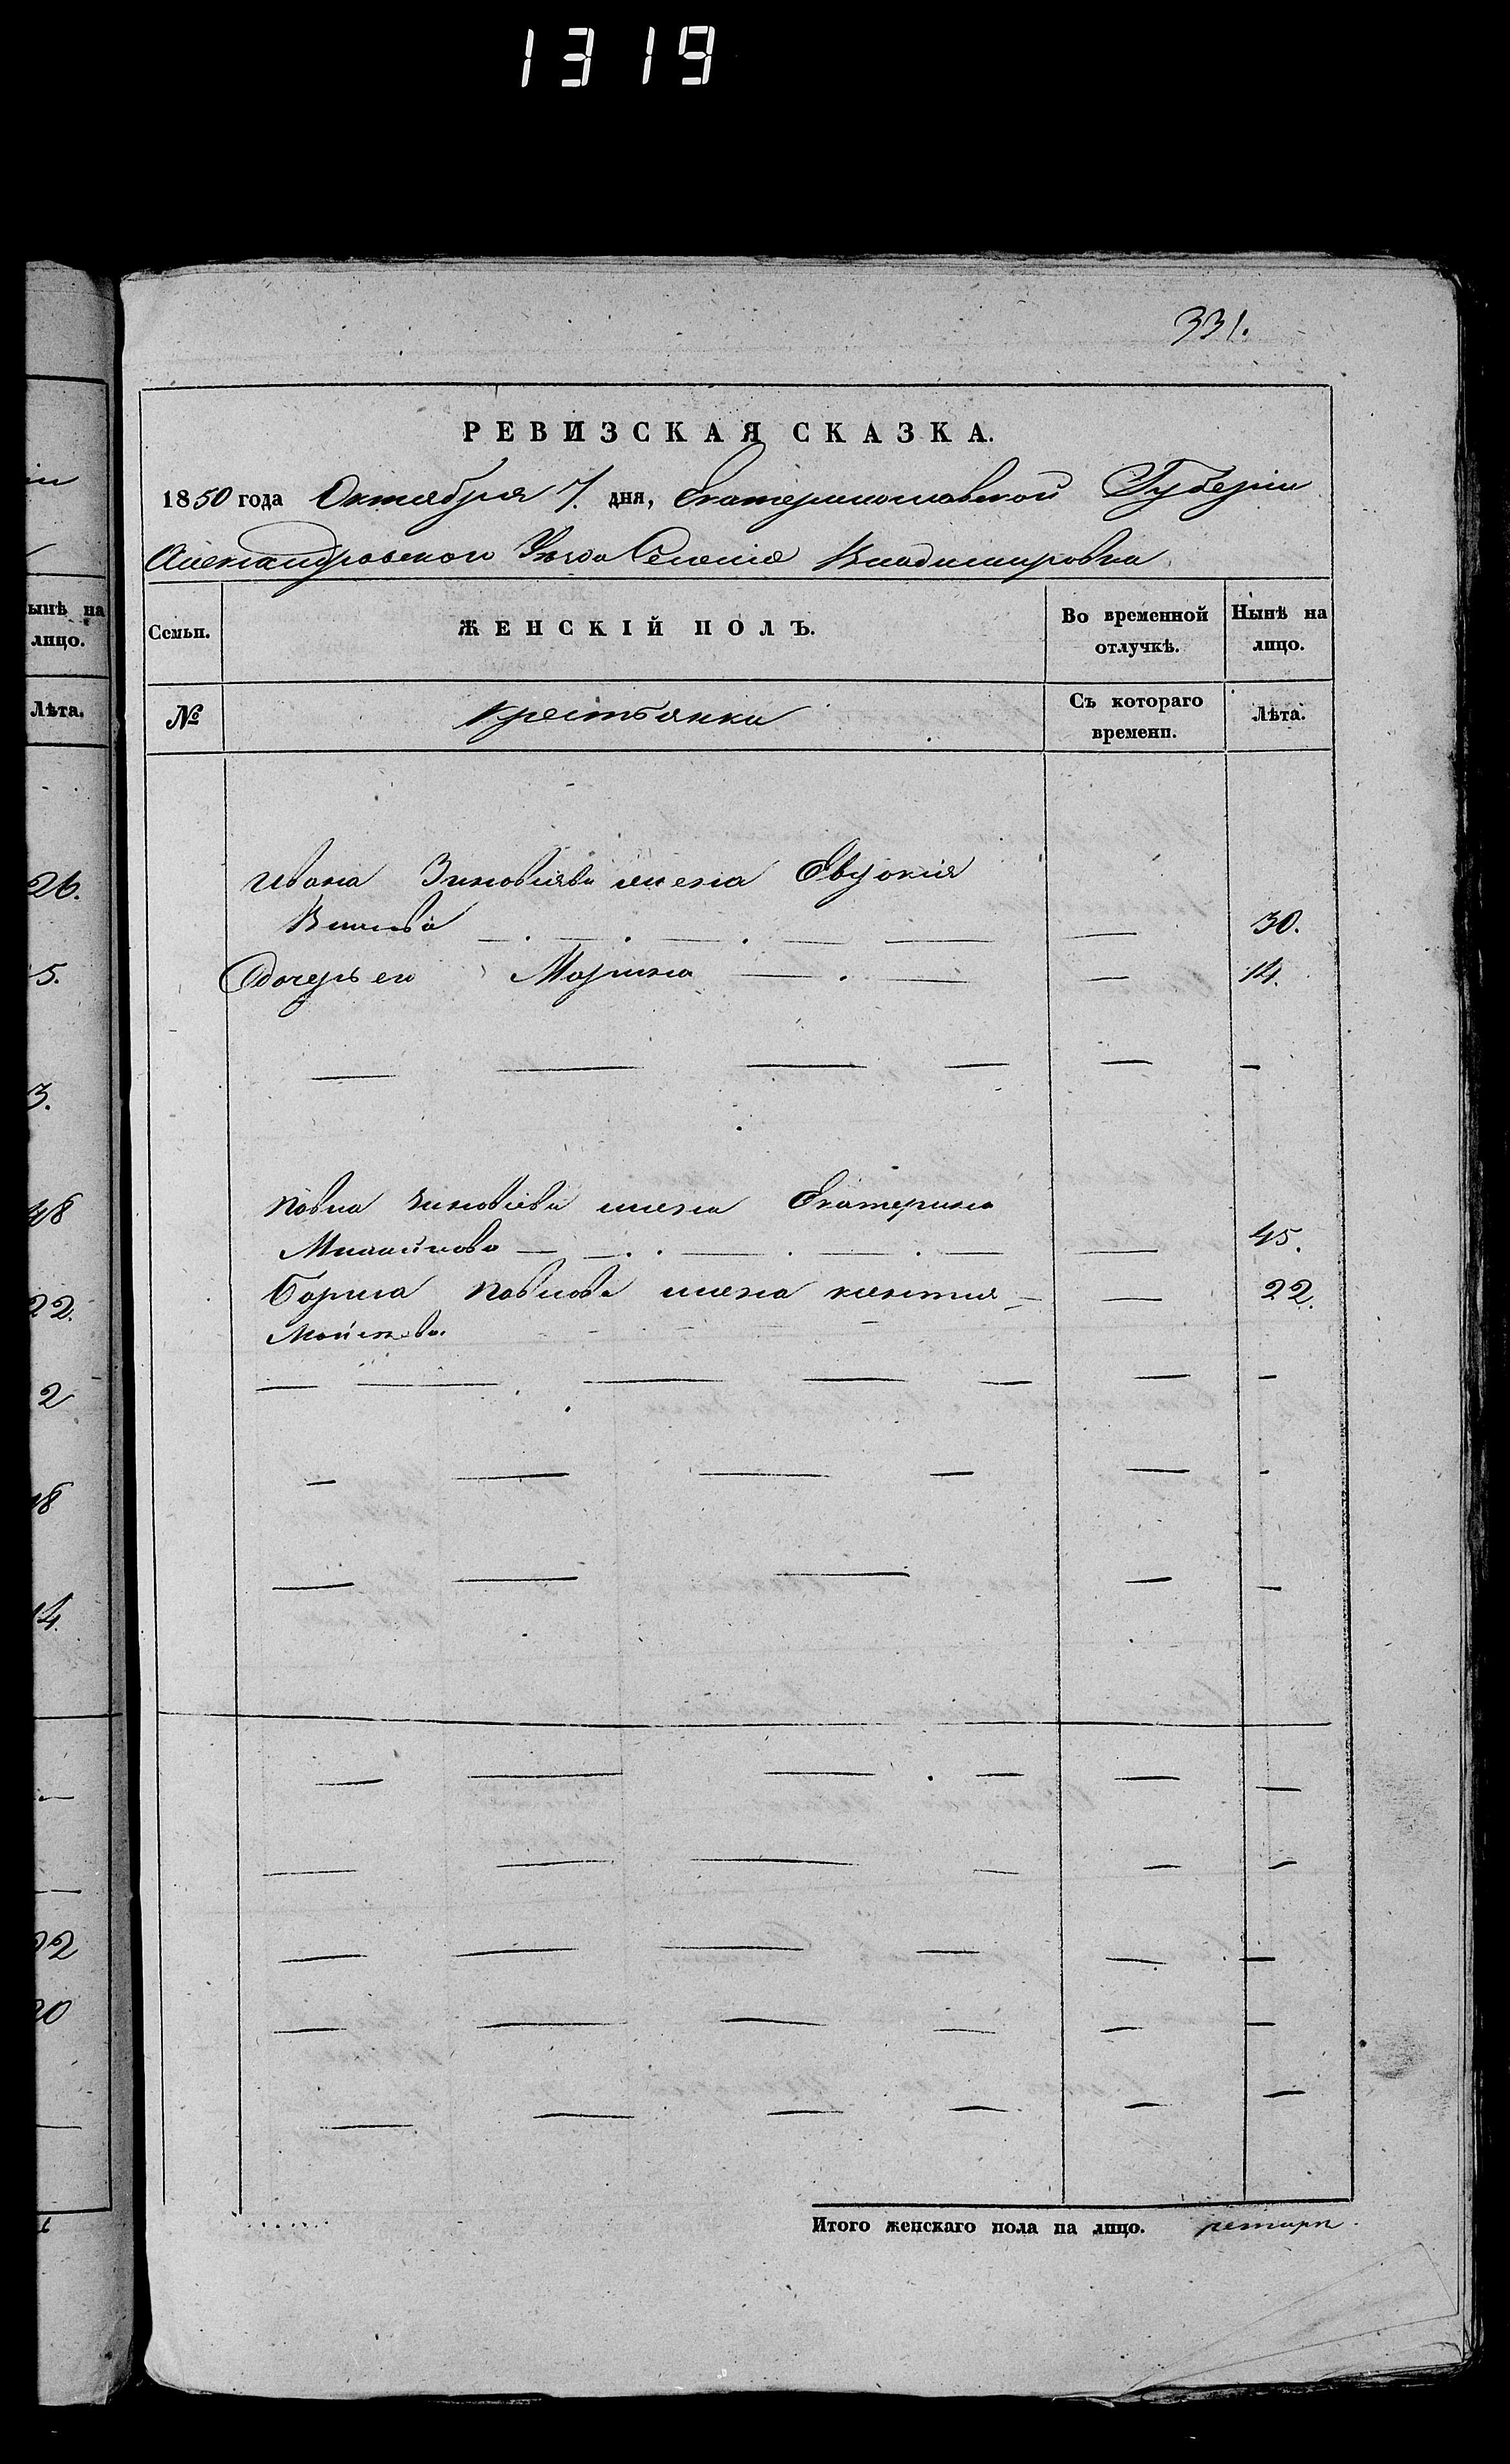 1319
331.
РЕВИЗСКАЯ СКАЗКА.
1850 года Октября 7. дня, Екатеринославской Губерніи
Александровскои Уезда Селенія Владимировка
Семьи. ЖЕНСКІЙ ПОЛЪ. Во временной отлучкѣ. Нынѣ на лицо.
№ крестьянки Съ котораго времени. Лѣта.
Ивана Зиновіева жена Евдокія
30.
дочерь ея Марина — . — — 14.
— — — — — —
Павла Зиновіева жена Екатерина
Михайлова — — . . — . — . — — 45.
Бориса Павлова жена — — 22.
— — . — — — — —
— — — — — -
— — — — —
— — — . — — —
— — — — — —
— — — — — —
— — — — — —
— — — — — —
Итого женскаго пола на лицо. четыри
ынѣ на
лицо.
Лѣта.
26.
5.
3.
48
22.
2
18
14.
22
20